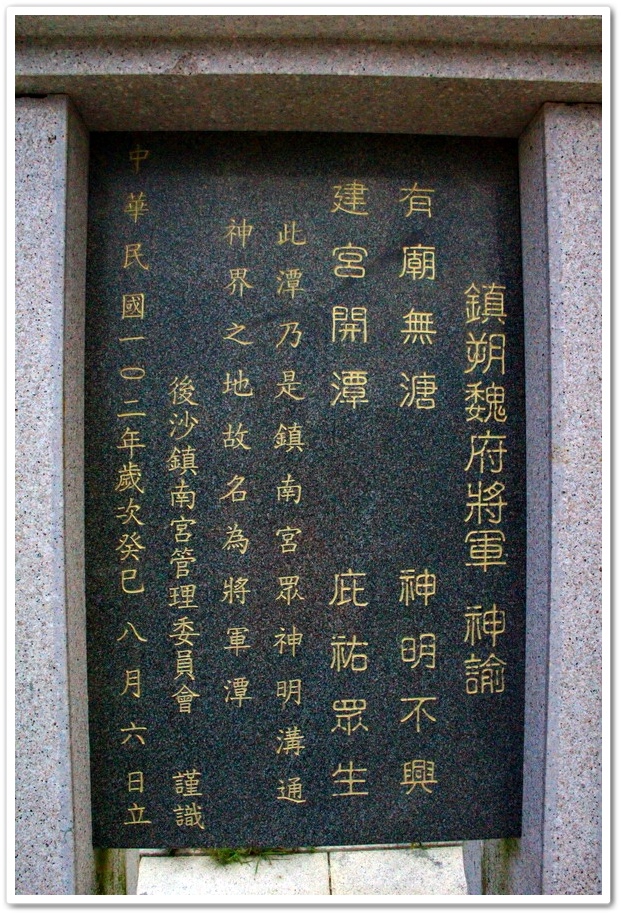 鎮朔魏府將軍 神諭
有廟無溏 神明不興
建宮開潭 庇祐眾生
此潭乃是鎮南宮眾神明溝通
神界之地故名為將軍潭
後沙鎮南宮管理委員會 謹識
中華民國一〇二年歲次癸巳 八月六日立